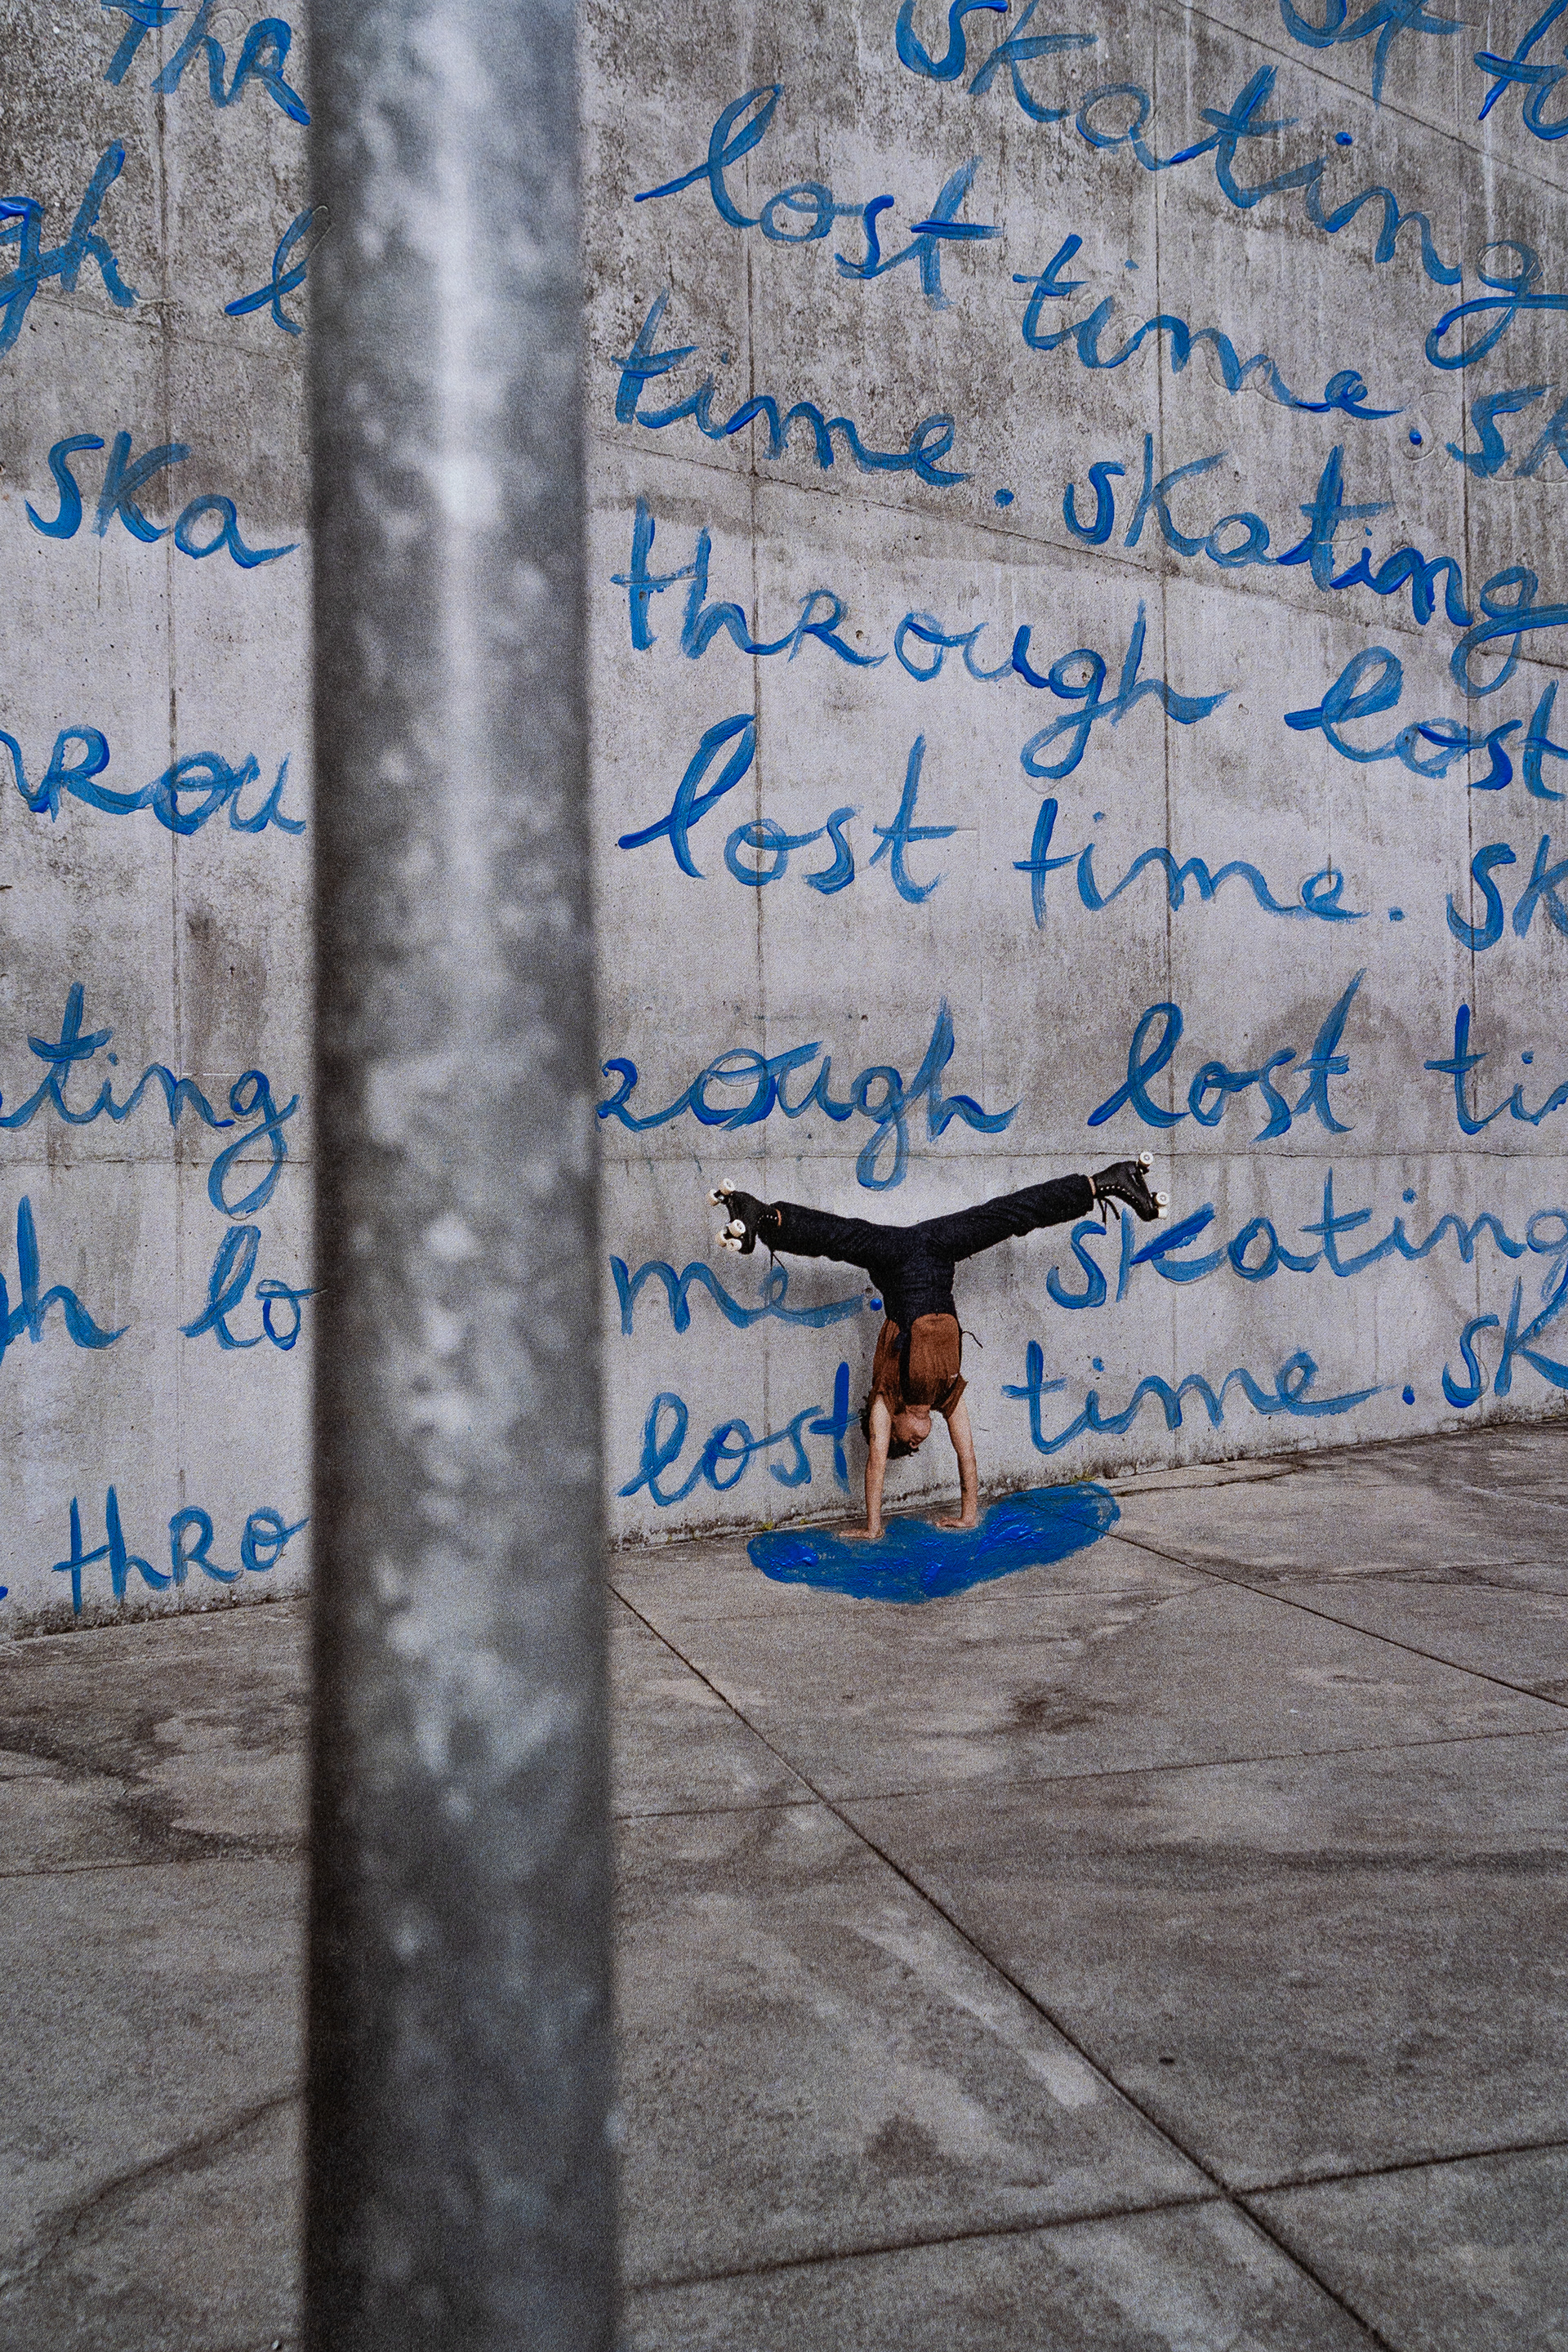 thR skating
gh l lost time. sk
ska time. skating
through lost
Rou lost time. sk
ting ough lost ti
gh lo me. skating
lost time. sk
thRo